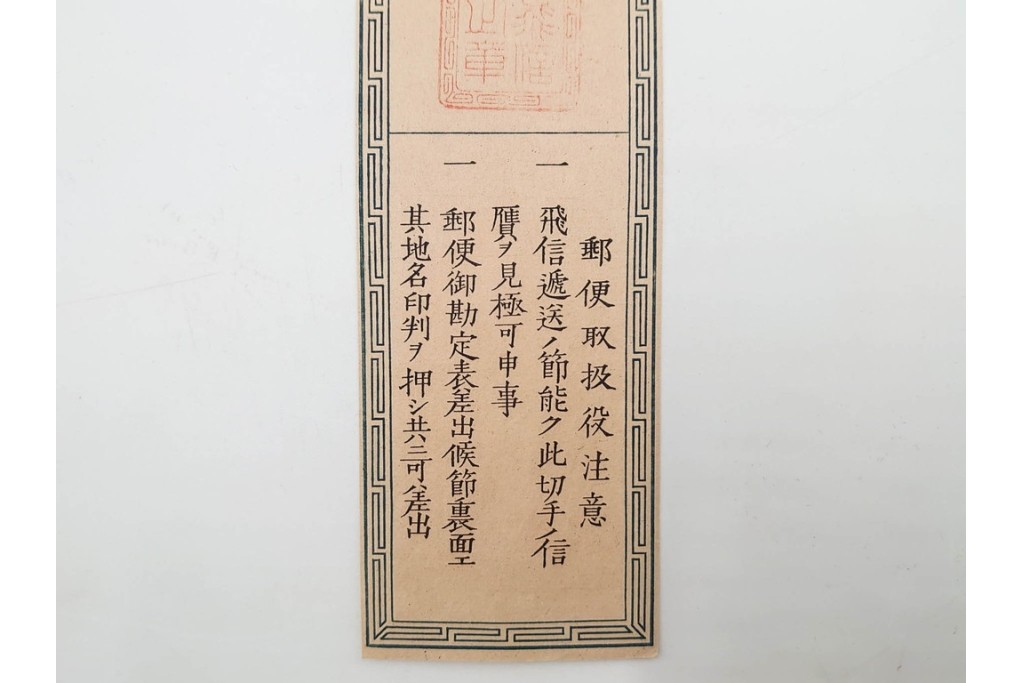 郵便取扱役注意
一 飛信遞送ノ節能ク此切手ノ信
贋ヲ見極可申事
一 郵便御勘定表差出候節裏面エ
其地名印判ヲ押シ共三可差出